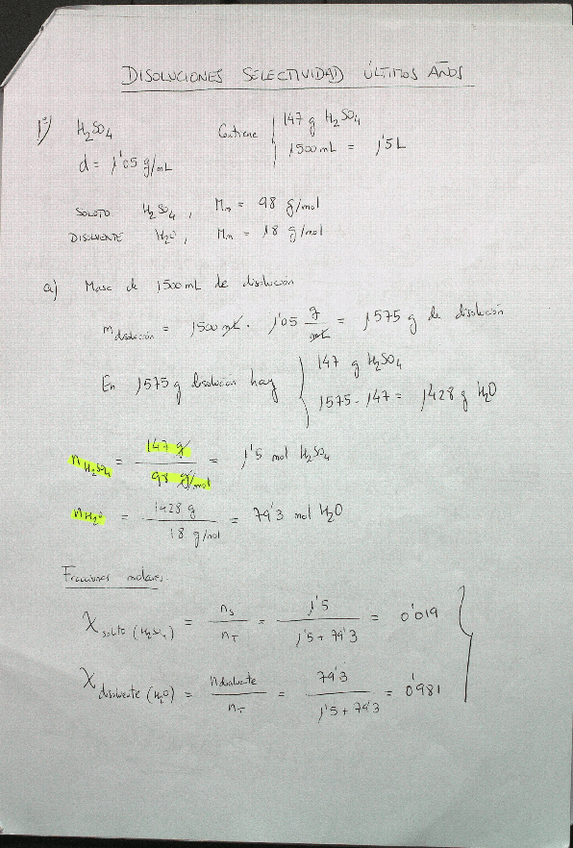 DISOLUCIONES SELECTIVIDAD ÚLTIMOS AÑOS
1º) H₂SO₄ Contiene 147 g H₂SO₄
d = 1'05 g/mL 1500 mL = 1'5 L
SOLUTO H₂SO₄, Mm = 98 g/mol
DISOLVENTE H₂O, Mm = 18 g/mol
a) Masa de 1500 mL de disolución
m disolución = 1500 mL · 1'05 g/mL = 1575 g de disolución
En 1575 g disolución hay 147 g H₂SO₄
1575 - 147 = 1428 g H₂O
n H₂SO₄ = 147 g / 98 g/mol = 1'5 mol H₂SO₄
n H₂O = 1428 g / 18 g/mol = 79'3 mol H₂O
Fracciones molares.
χ soluto (H₂SO₄) = nₛ / n_T = 1'5 / 1'5 + 79'3 = 0'019
χ disolvente (H₂O) = n disolvente / n_T = 79'3 / 1'5 + 79'3 = 0'981